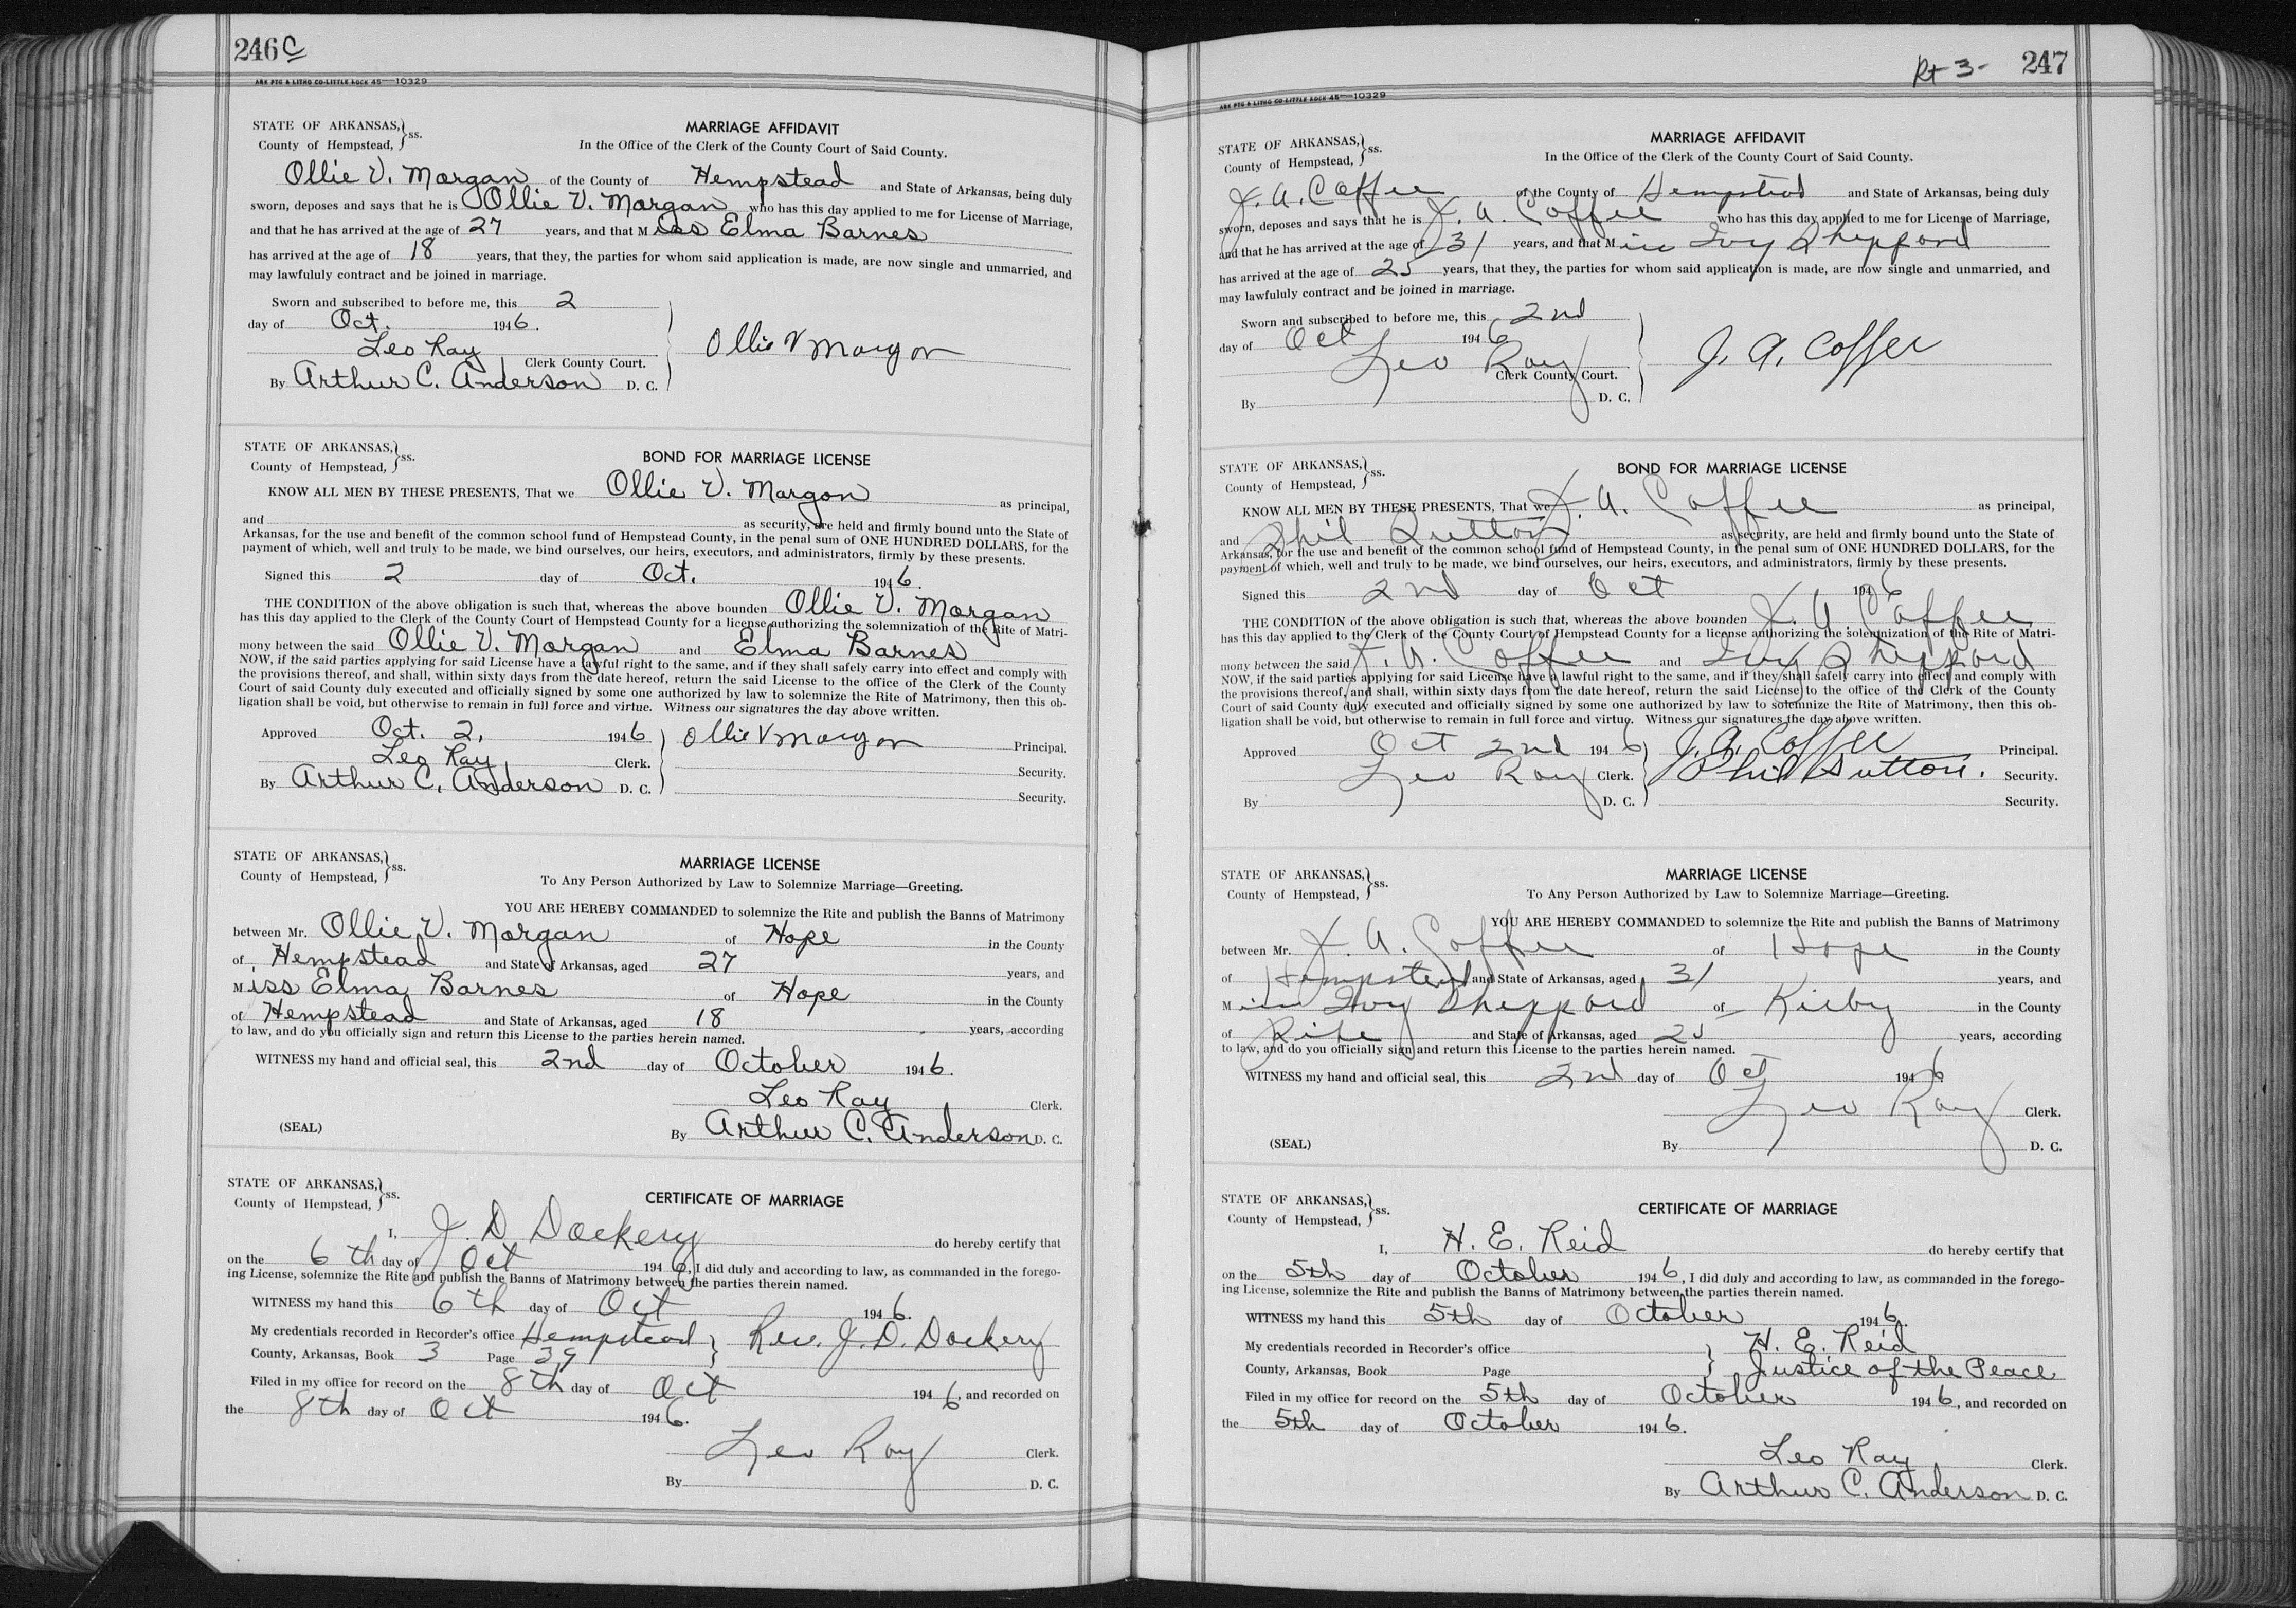 246 C
ARK PTG & LITHO CO-LITTLE ROCK 45—10329
STATE OF ARKANSAS, } ss.
County of Hempstead,
MARRIAGE AFFIDAVIT
In the Office of the Clerk of the County Court of Said County.
Ollie V. Morgan of the County of Hempstead and State of Arkansas, being duly
sworn, deposes and says that he is Ollie V. Morgan who has this day applied to me for License of Marriage,
and that he has arrived at the age of 27 years, and that Miss Elma Barnes
has arrived at the age of 18 years, that they, the parties for whom said application is made, are now single and unmarried, and
may lawfululy contract and be joined in marriage.
Sworn and subscribed to before me, this 2
day of Oct. 1946.
Leo Ray Clerk County Court.
Ollie V Morgan
By Arthur C. Anderson D. C.
STATE OF ARKANSAS, } ss.
County of Hempstead,
BOND FOR MARRIAGE LICENSE
KNOW ALL MEN BY THESE PRESENTS, That we Ollie V. Margon as principal,
and as security, are held and firmly bound unto the State of
Arkansas, for the use and benefit of the common school fund of Hempstead County, in the penal sum of ONE HUNDRED DOLLARS, for the
payment of which, well and truly to be made, we bind ourselves, our heirs, executors, and administrators, firmly by these presents.
Signed this 2 day of Oct. 1946.
THE CONDITION of the above obligation is such that, whereas the above bounden Ollie V. Morgan
has this day applied to the Clerk of the County Court of Hempstead County for a license authorizing the solemnization of the Rite of Matri-
mony between the said Ollie V. Morgan and Elma Barnes
NOW, if the said parties applying for said License have a lawful right to the same, and if they shall safely carry into effect and comply with
the provisions thereof, and shall, within sixty days from the date hereof, return the said License to the office of the Clerk of the County
Court of said County duly executed and officially signed by some one authorized by law to solemnize the Rite of Matrimony, then this ob-
ligation shall be void, but otherwise to remain in full force and virtue. Witness our signatures the day above written.
Approved Oct. 2, 1946 Ollie V Morgan Principal.
Leo Ray Clerk. Security.
By Arthur C. Anderson D. C. Security.
STATE OF ARKANSAS, } ss.
County of Hempstead,
MARRIAGE LICENSE
To Any Person Authorized by Law to Solemnize Marriage—Greeting.
YOU ARE HEREBY COMMANDED to solemnize the Rite and publish the Banns of Matrimony
between Mr. Ollie V. Morgan of Hope in the County
of Hempstead and State of Arkansas, aged 27 years, and
Miss Elma Barnes of Hope in the County
of Hempstead and State of Arkansas, aged 18 years, according
to law, and do you officially sign and return this License to the parties herein named.
WITNESS my hand and official seal, this 2nd day of October 1946.
Leo Ray Clerk.
(SEAL) By Arthur C. Anderson D. C.
STATE OF ARKANSAS, } ss.
County of Hempstead,
CERTIFICATE OF MARRIAGE
I, J. D Dockery do hereby certify that
on the 6th day of Oct 1946, I did duly and according to law, as commanded in the forego-
ing License, solemnize the Rite and publish the Banns of Matrimony between the parties therein named.
WITNESS my hand this 6th day of Oct 1946.
My credentials recorded in Recorder's office Hempstead Rev. J. D. Dockery
County, Arkansas, Book 3 Page 39
Filed in my office for record on the 8th day of Oct 1946, and recorded on
the 8th day of Oct 1946.
Leo Ray Clerk.
By D. C.
Rt 3- 247
ARK PTG & LITHO CO-LITTLE ROCK 45—10329
STATE OF ARKANSAS, } ss.
County of Hempstead,
MARRIAGE AFFIDAVIT
In the Office of the Clerk of the County Court of Said County.
J. A. Coffee of the County of Hempstead and State of Arkansas, being duly
sworn, deposes and says that he is J. A. Coffee who has this day applied to me for License of Marriage,
and that he has arrived at the age of 31 years, and that Miss Ivy Sheppard
has arrived at the age of 25 years, that they, the parties for whom said application is made, are now single and unmarried, and
may lawfululy contract and be joined in marriage.
Sworn and subscribed to before me, this 2nd
day of Oct 1946
Leo Ray Clerk County Court.
J. A. Coffee
By D. C.
STATE OF ARKANSAS, } ss.
County of Hempstead,
BOND FOR MARRIAGE LICENSE
KNOW ALL MEN BY THESE PRESENTS, That we J. A. Coffee as principal,
and Phil Sutton as security, are held and firmly bound unto the State of
Arkansas, for the use and benefit of the common school fund of Hempstead County, in the penal sum of ONE HUNDRED DOLLARS, for the
payment of which, well and truly to be made, we bind ourselves, our heirs, executors, and administrators, firmly by these presents.
Signed this 2nd day of Oct 1946
THE CONDITION of the above obligation is such that, whereas the above bounden J. A. Coffee
has this day applied to the Clerk of the County Court of Hempstead County for a license authorizing the solemnization of the Rite of Matri-
mony between the said J. A. Coffee and Ivy Sheppard
NOW, if the said parties applying for said License have a lawful right to the same, and if they shall safely carry into effect and comply with
the provisions thereof, and shall, within sixty days from the date hereof, return the said License to the office of the Clerk of the County
Court of said County duly executed and officially signed by some one authorized by law to solemnize the Rite of Matrimony, then this ob-
ligation shall be void, but otherwise to remain in full force and virtue. Witness our signatures the day above written.
Approved Oct 2nd 1946 J. A. Coffee Principal.
Leo Ray Clerk. Phil Sutton. Security.
By D. C. Security.
STATE OF ARKANSAS, } ss.
County of Hempstead,
MARRIAGE LICENSE
To Any Person Authorized by Law to Solemnize Marriage—Greeting.
YOU ARE HEREBY COMMANDED to solemnize the Rite and publish the Banns of Matrimony
between Mr. J. A. Coffee of Hope in the County
of Hempstead and State of Arkansas, aged 31 years, and
Miss Ivy Sheppard of Kirby in the County
of Pike and State of Arkansas, aged 25 years, according
to law, and do you officially sign and return this License to the parties herein named.
WITNESS my hand and official seal, this 2nd day of Oct 1946
Leo Ray Clerk.
(SEAL) By D. C.
STATE OF ARKANSAS, } ss.
County of Hempstead,
CERTIFICATE OF MARRIAGE
I, H. E. Reid do hereby certify that
on the 5th day of October 1946, I did duly and according to law, as commanded in the forego-
ing License, solemnize the Rite and publish the Banns of Matrimony between the parties therein named.
WITNESS my hand this 5th day of October 1946.
My credentials recorded in Recorder's office H. E. Reid
County, Arkansas, Book Page Justice of the Peace
Filed in my office for record on the 5th day of October 1946, and recorded on
the 5th day of October 1946.
Leo Ray Clerk.
By Arthur C. Anderson D. C.